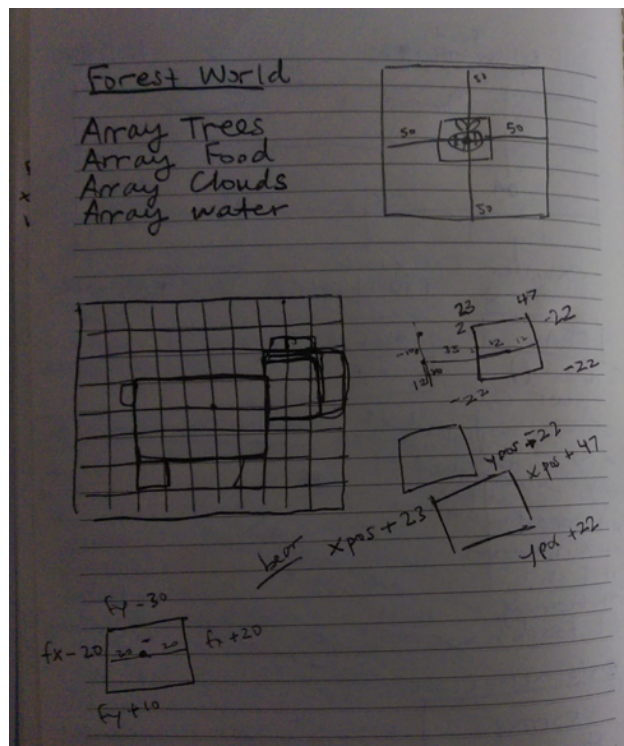 Forest World
Array Trees
Array Food
Array Clouds
Array water
50
50
50
23
47
2
-22
35
12
12
-22
-22
ypos -22
xpos + 47
xpos + 23
ypos +22
bear
fy-30
fx-20
20
20
fx+20
fy+10